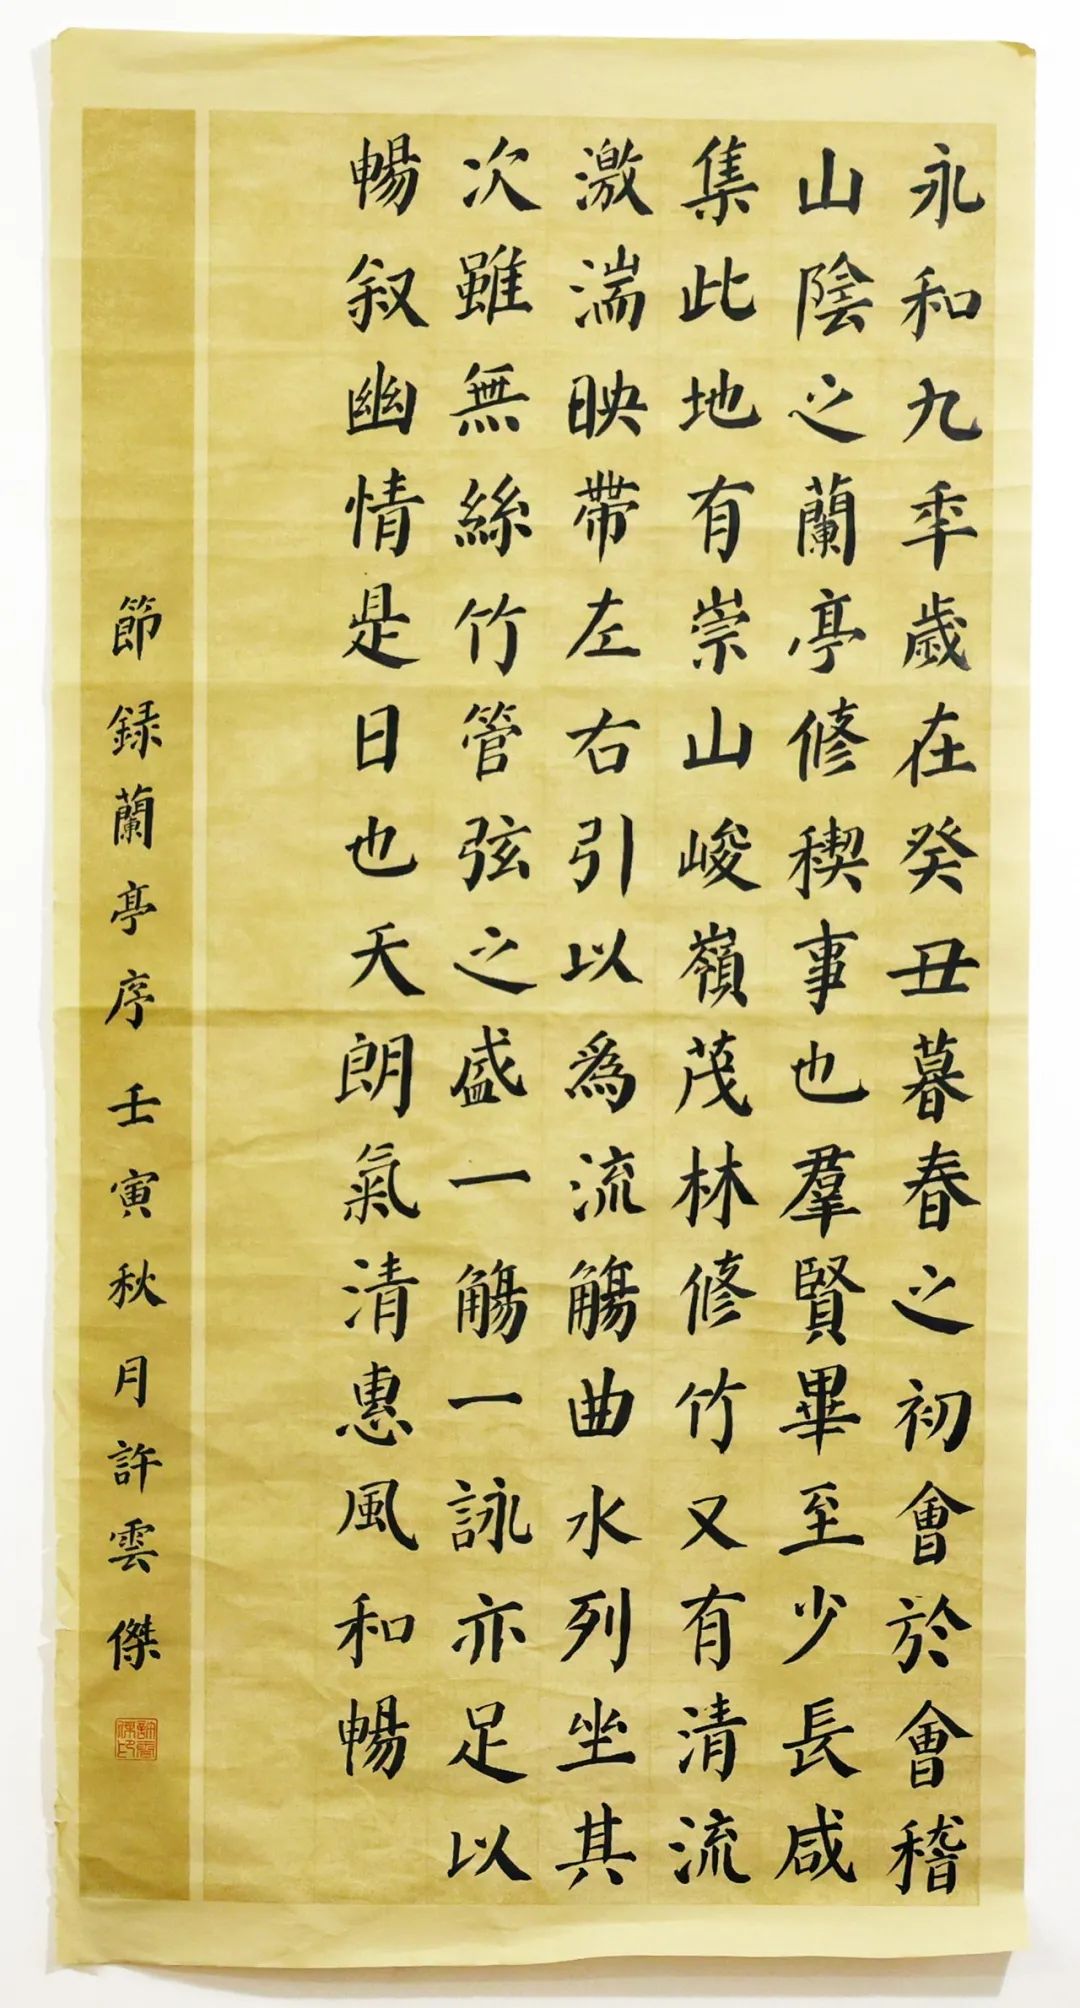 永和九年歲在癸丑暮春之初會於會稽
山陰之蘭亭修稧事也羣賢畢至少長咸
集此地有崇山峻嶺茂林修竹又有清流
激湍映帶左右引以為流觴曲水列坐其
次雖無絲竹管弦之盛一觴一詠亦足以
暢叙幽情是日也天朗氣清惠風和暢
節録蘭亭序壬寅秋月許雲傑